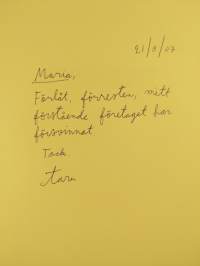 21/8/07
Maria,
Förlåt, förresten, mitt
förstående företaget har
försvunnat.
Tack.
Taru